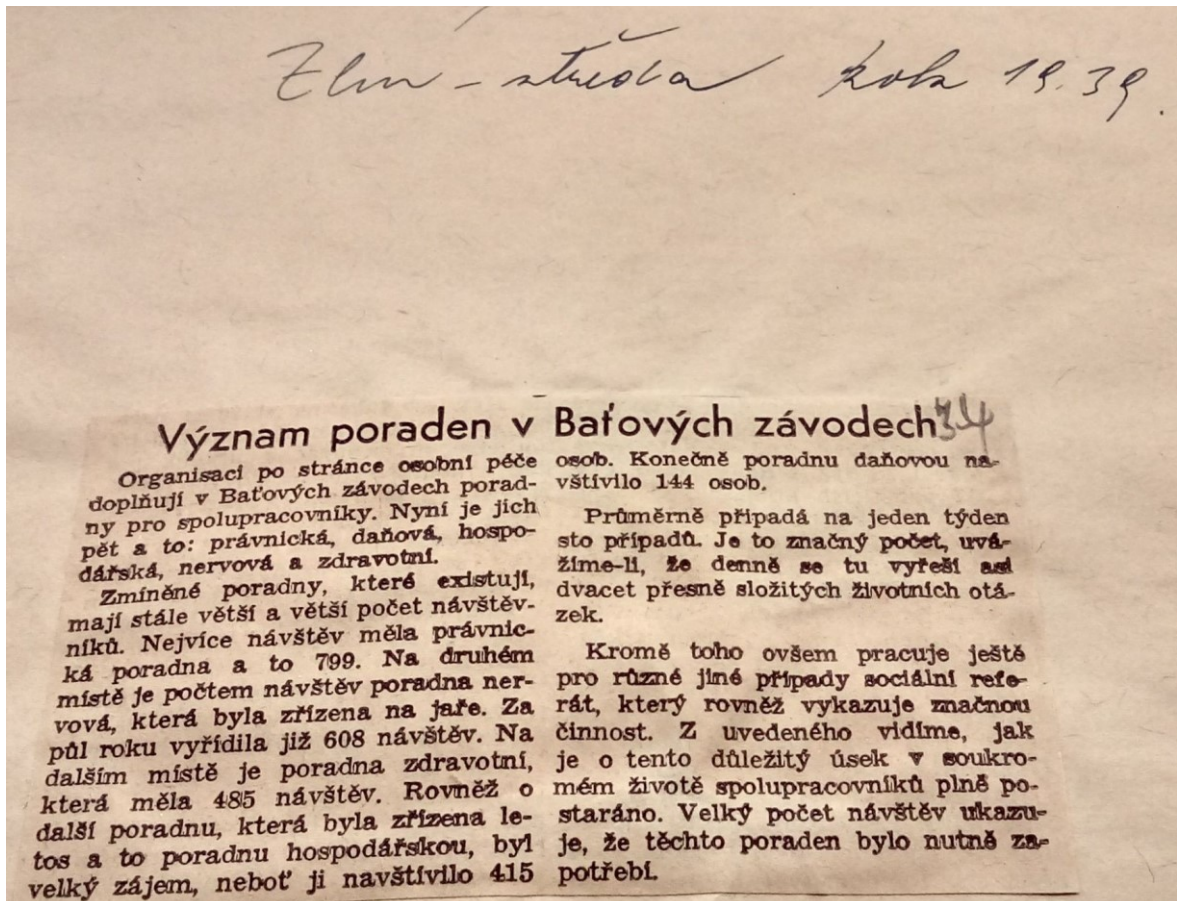 Zlín – středa rok 19.39.
Význam poraden v Baťových závodech 34
Organisaci po stránce osobní péče
doplňují v Baťových závodech porad-
ny pro spolupracovníky. Nyní je jich
pět a to: právnická, daňová, hospo-
dářská, nervová a zdravotní.
Zmíněné poradny, které existují,
mají stále větší a větší počet návštěv-
níků. Nejvíce návštěv měla právnic-
ká poradna a to 799. Na druhém
místě je počtem návštěv poradna ner-
vová, která byla zřízena na jaře. Za
půl roku vyřídila již 608 návštěv. Na
dalším místě je poradna zdravotní,
která měla 485 návštěv. Rovněž o
další poradnu, která byla zřízena le-
tos a to poradnu hospodářskou, byl
velký zájem, neboť ji navštívilo 415
osob. Konečně poradnu daňovou na-
vštívilo 144 osob.
Průměrně připadá na jeden týden
sto případů. Je to značný počet, uvá-
žíme-li, že denně se tu vyřeší asi
dvacet přesně složitých životních otá-
zek.
Kromě toho ovšem pracuje ještě
pro různé jiné případy sociální refe-
rát, který rovněž vykazuje značnou
činnost. Z uvedeného vidíme, jak
je o tento důležitý úsek v soukro-
mém životě spolupracovníků plně po-
staráno. Velký počet návštěv ukazu-
je, že těchto poraden bylo nutně za-
potřebí.